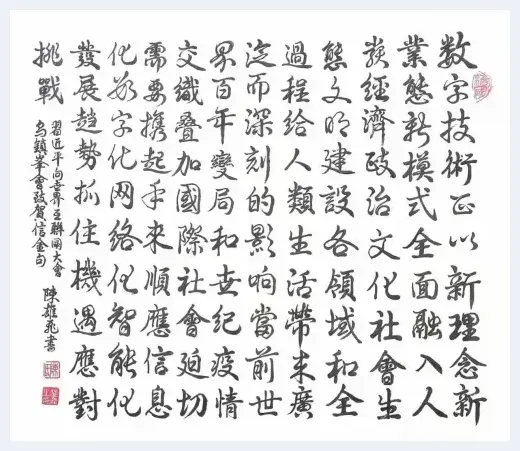 数字技術正以新理念新
業態新模式全面融入人
类經濟政治文化社會生
態文明建設各領域和全
過程給人類生活帶来廣
泛而深刻的影响當前世
界百年變局和世纪疫情
交織叠加國際社會迫切
需要携起手来順應信息
化数字化网络化智能化
發展趋勢抓住機遇應對
挑戰
習近平向世界互聯网大會
烏鎮峯會致贺信金句
陳雄飛書